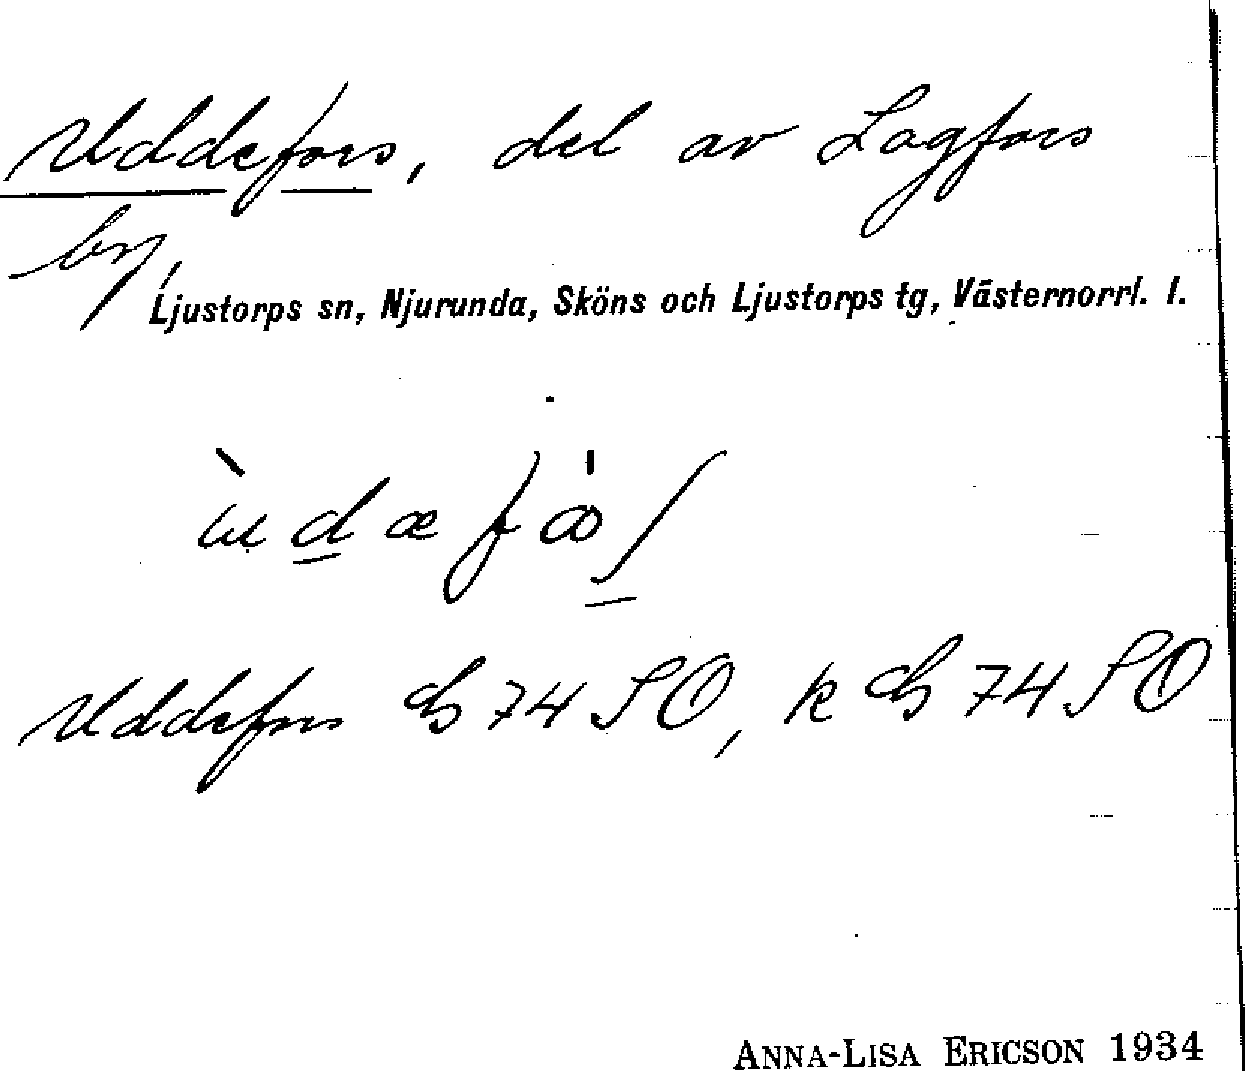 Uddefors, del av Lagfors
by,
Ljustorps sn, Njurunda, Sköns och Ljustorps tg, Västernorrl. l.
Uddefors GS 74 SO, k GS 74 SO
ANNA-LISA ERICSON 1934